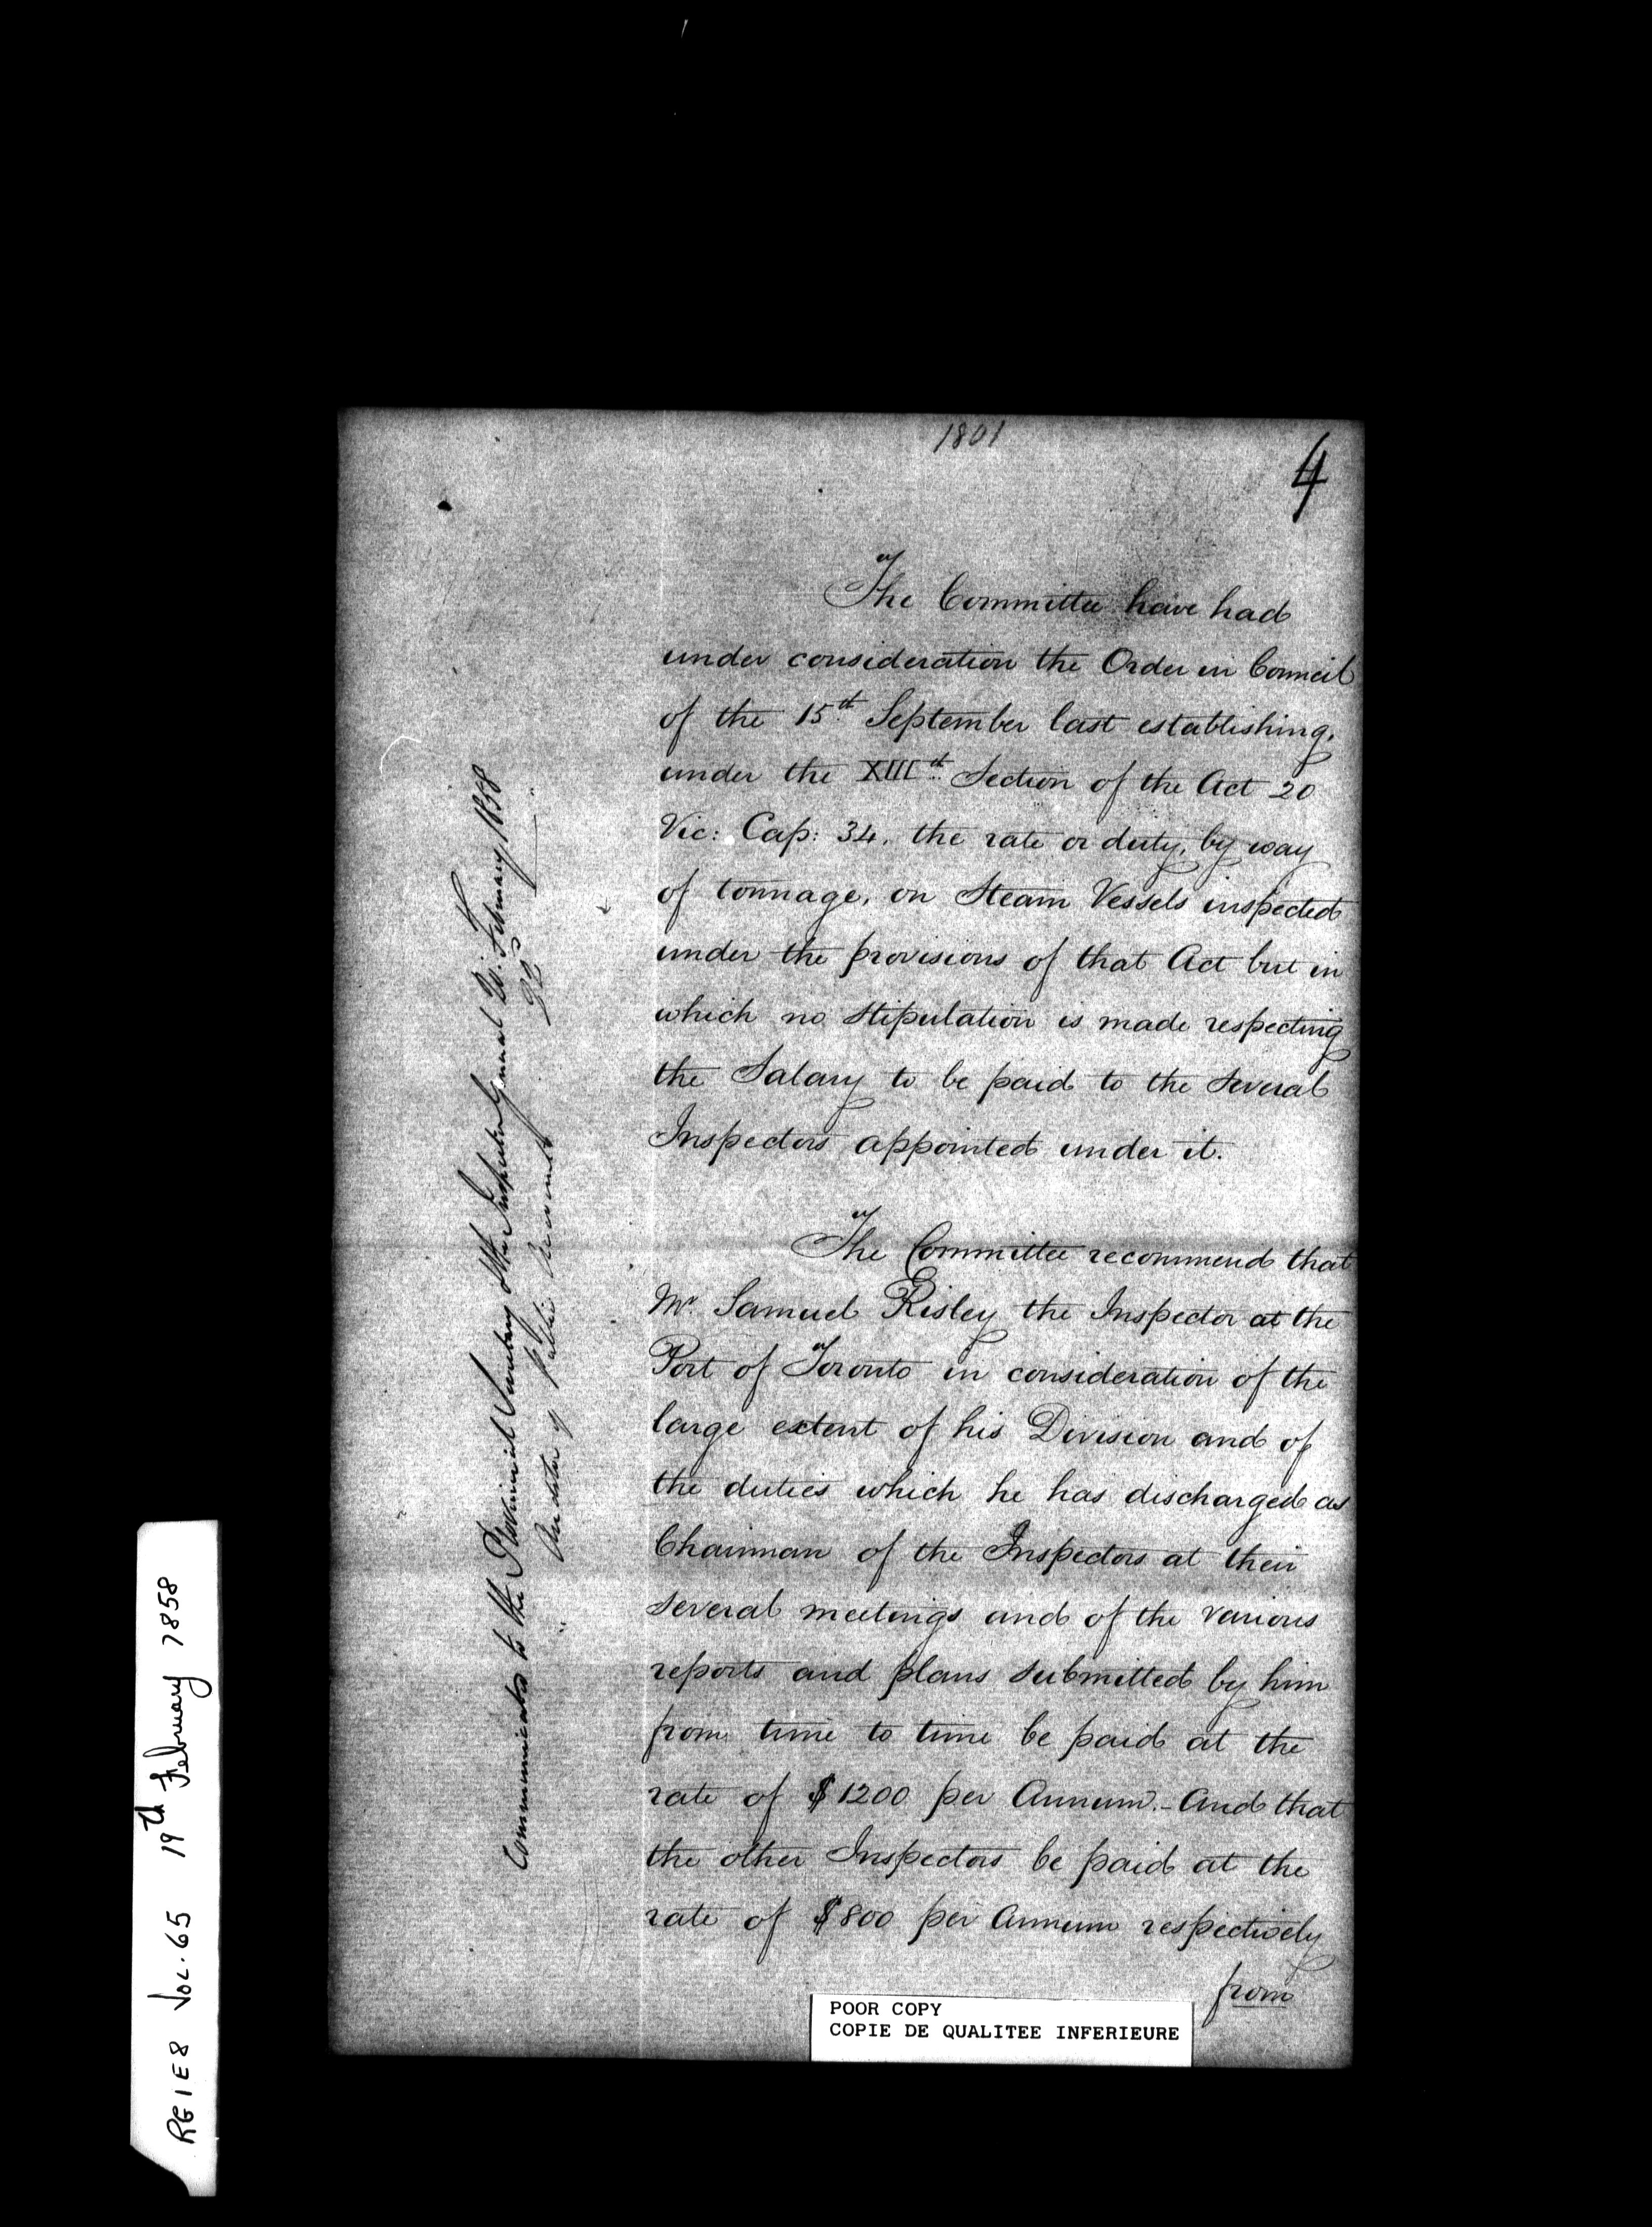 1801
4
The Committee have had
under consideration the Order in Council
of the 15th September last establishing,
under the XIIIth Section of the Act 20
Vic: Cap: 34, the rate or duty, by way
of tonnage, on Steam Vessels inspected
under the provisions of that Act but in
which no stipulation is made respecting
the Salary to be paid to the several
Inspectors appointed under it.
The Committee recommend that
Mr. Samuel Risley the Inspector at the
Port of Toronto in consideration of the
large extent of his Division and of
the duties which he has discharged as
Chairman of the Inspectors at their
several meetings and of the various
reports and plans submitted by him
from time to time be paid at the
rate of $1200 per Annum.- And that
the other Inspectors be paid at the
rate of $800 per Annum respectively
from
Communicated to the Provincial Secretary & the Inspector General February 1858
Auditor of Public Accounts
RG1E8 VOL. 65 19th February 1858
POOR COPY
COPIE DE QUALITEE INFERIEURE